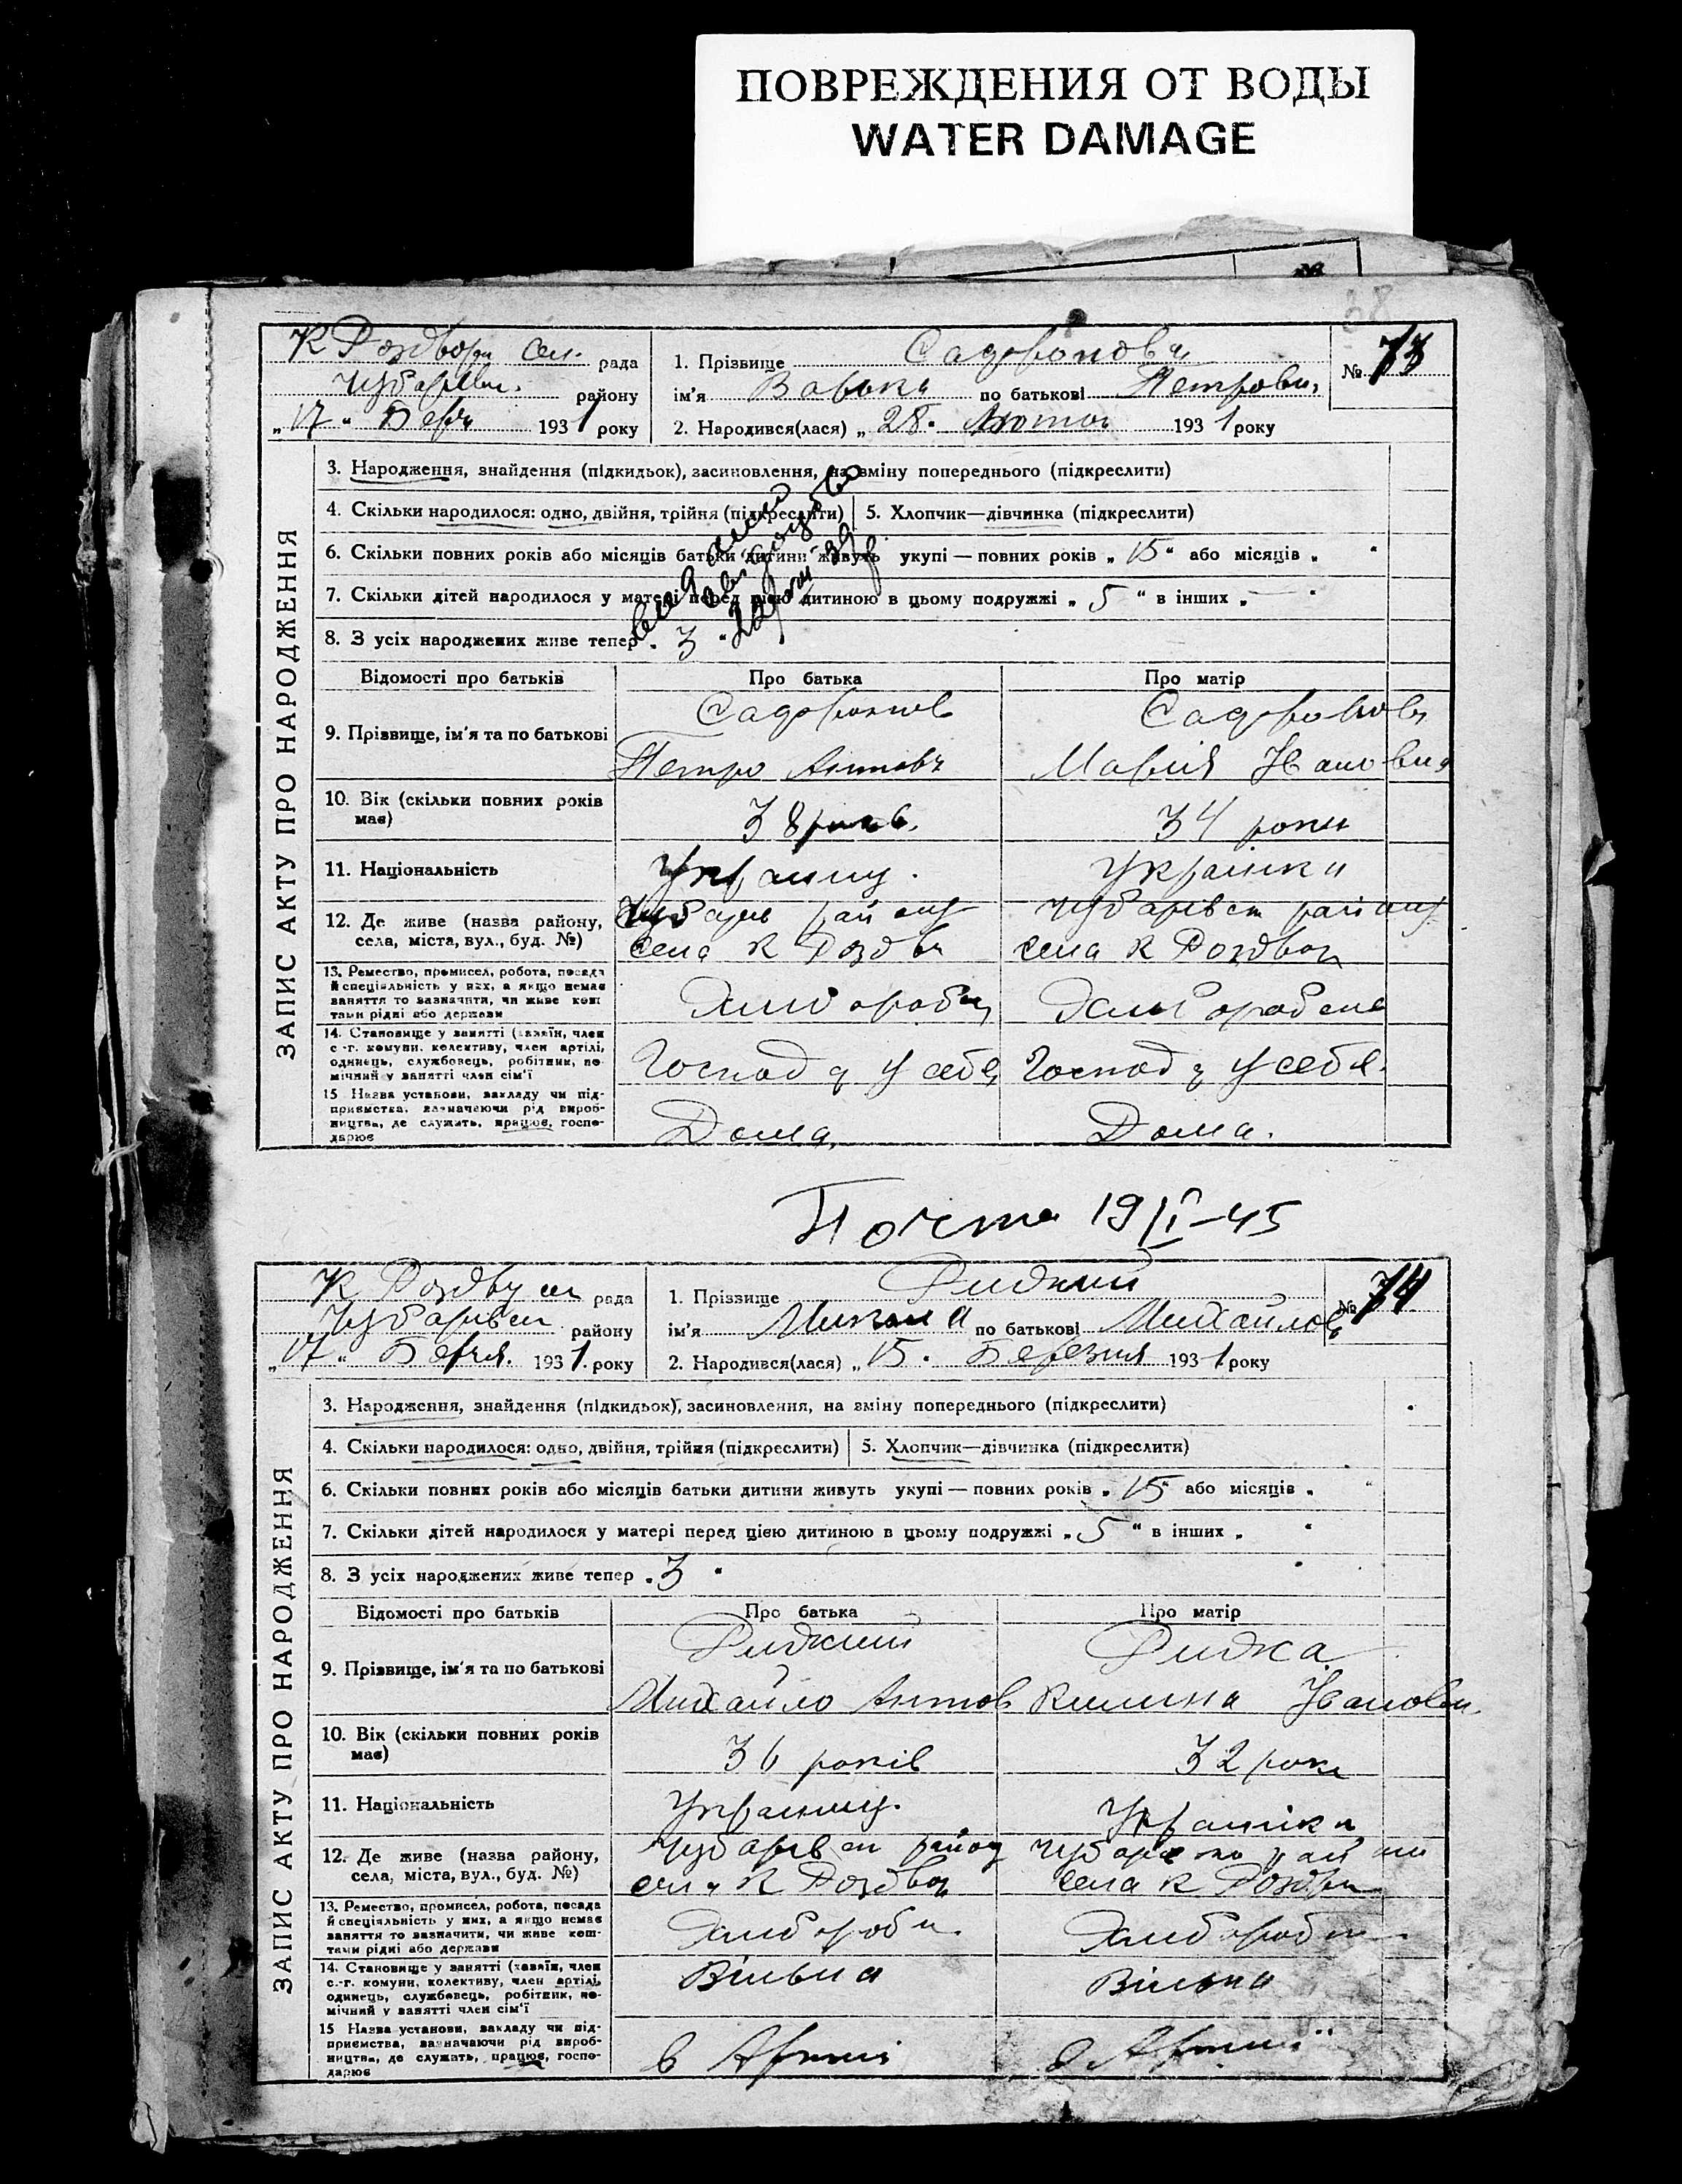 ПОВРЕЖДЕНИЯ ОТ ВОДЫ
WATER DAMAGE
№
К Роздвори сел. рада
району
„17“ Берз 1931 року
1. Прізвище
ім'я Варька по батькові Петровна
2. Народився(лася) „28“ Лютого 1931 року
№ 73
ЗАПИС АКТУ ПРО НАРОДЖЕННЯ
3. Народження, знайдення (підкидьок), засиновлення, на зміну попереднього (підкреслити)
4. Скільки народилося: одно, двійня, трійня (підкреслити)
5. Хлопчик—дівчинка (підкреслити)
6. Скільки повних років або місяців батьки дитини живуть укупі — повних років „15“ або місяців „ “
7. Скільки дітей народилося у матері перед цією дитиною в цьому подружжі „5“ в інших „—“
8. З усіх народжених живе тепер „3“
Відомості про батьків Про батька Про матір
9. Прізвище, ім'я та по батькові
Петро Антовъ Марія Івановна
10. Вік (скільки повних років має) 38 років. 34 роки
11. Національність Українц. Українка
12. Де живе (назва району, села, міста, вул., буд. №)
села К села К
13. Ремество, промисел, робота, посада й спеціяльність у них, а якщо немає заняття то зазначити, чи живе коштами рідні або держави
14. Становище у занятті (хазяїн, член с.-г. комуни, колективу, член артілі, одинець, службовець, робітник, помічний у занятті член сім'ї
Господ у себе Господ у себе.
15 Назва установи, закладу чи підприємства, зазначаючи рід виробництва, де служить, працює, господарює
Дома, Дома.
Почта 19/I-45
рада
району
„17“ 1931 року
1. Прізвище Ридкий
ім'я Микола по батькові Михайлов
2. Народився(лася) „15“ Березня 1931 року
№ 74
ЗАПИС АКТУ ПРО НАРОДЖЕННЯ
3. Народження, знайдення (підкидьок), засиновлення, на зміну попереднього (підкреслити)
4. Скільки народилося: одно, двійня, трійня (підкреслити)
5. Хлопчик—дівчинка (підкреслити)
6. Скільки повних років або місяців батьки дитини живуть укупі — повних років „15“ або місяців „ “
7. Скільки дітей народилося у матері перед цією дитиною в цьому подружжі „5“ в інших „ “
8. З усіх народжених живе тепер „3“
Відомості про батьків Про батька Про матір
9. Прізвище, ім'я та по батькові
Ридкий Ридка
Михайло Антов Килина Івановн
10. Вік (скільки повних років має) 36 років 32 роки
11. Національність Українц. Українка
12. Де живе (назва району, села, міста, вул., буд. №)
села К села К
13. Ремество, промисел, робота, посада й спеціяльність у них, а якщо немає заняття то зазначити, чи живе коштами рідні або держави
14. Становище у занятті (хазяїн, член с.-г. комуни, колективу, член артілі, одинець, службовець, робітник, помічний у занятті член сім'ї
Вільна Вільна
15 Назва установи, закладу чи підприємства, зазначаючи рід виробництва, де служить, працює, господарює
в Артілі в Артілі